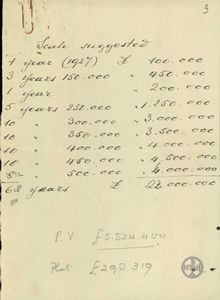 3
Scale suggested
1 year (1927) £ 100.000
3 years 150.000 " 450.000
1 year " 200.000
5 years 250.000 " 1.250.000
10 " 300.000 " 3.000.000
10 " 350.000 " 3.500.000
10 " 400.000 " 4.000.000
10 " 450.000 " 4.500.000
12 " 500.000 " 6.000.000
62 years £
P.V £5.524.400
£290.319